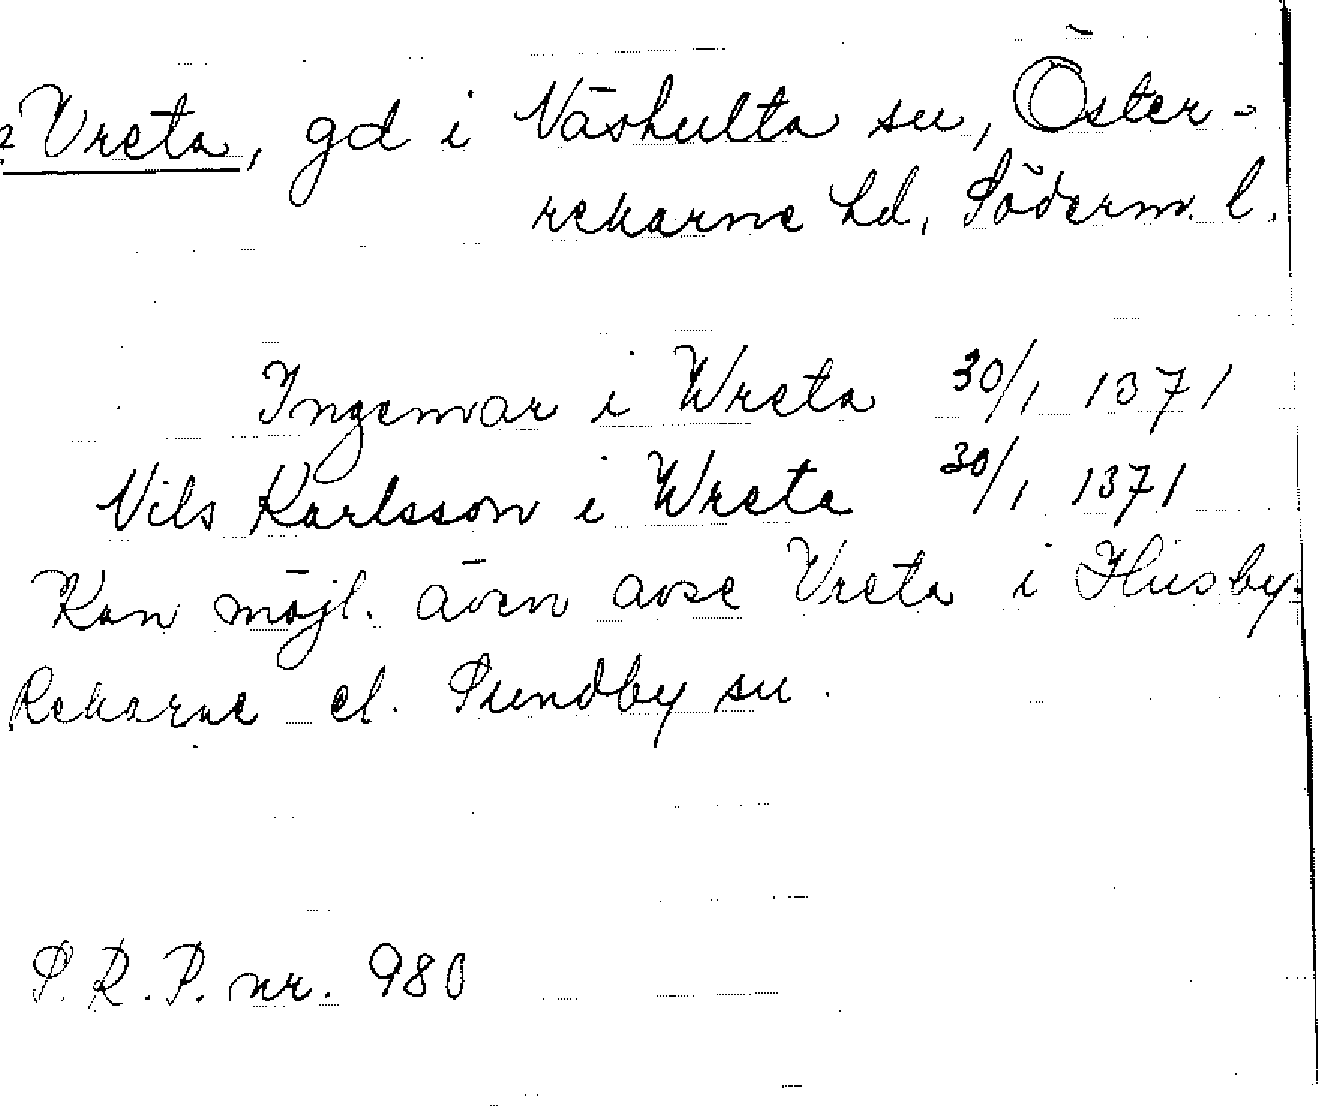 Vreta, gd i Näshulta sn, Öster-
rekarne hd, Söderm. l.
Ingemar i Wreta 30/1 1371
Nils Karlsson i Wreta 30/1 1371
Kan möjl. även avse Vreta i Husby-
Rekarne el. Sundby sn.
S.R.P. nr. 980